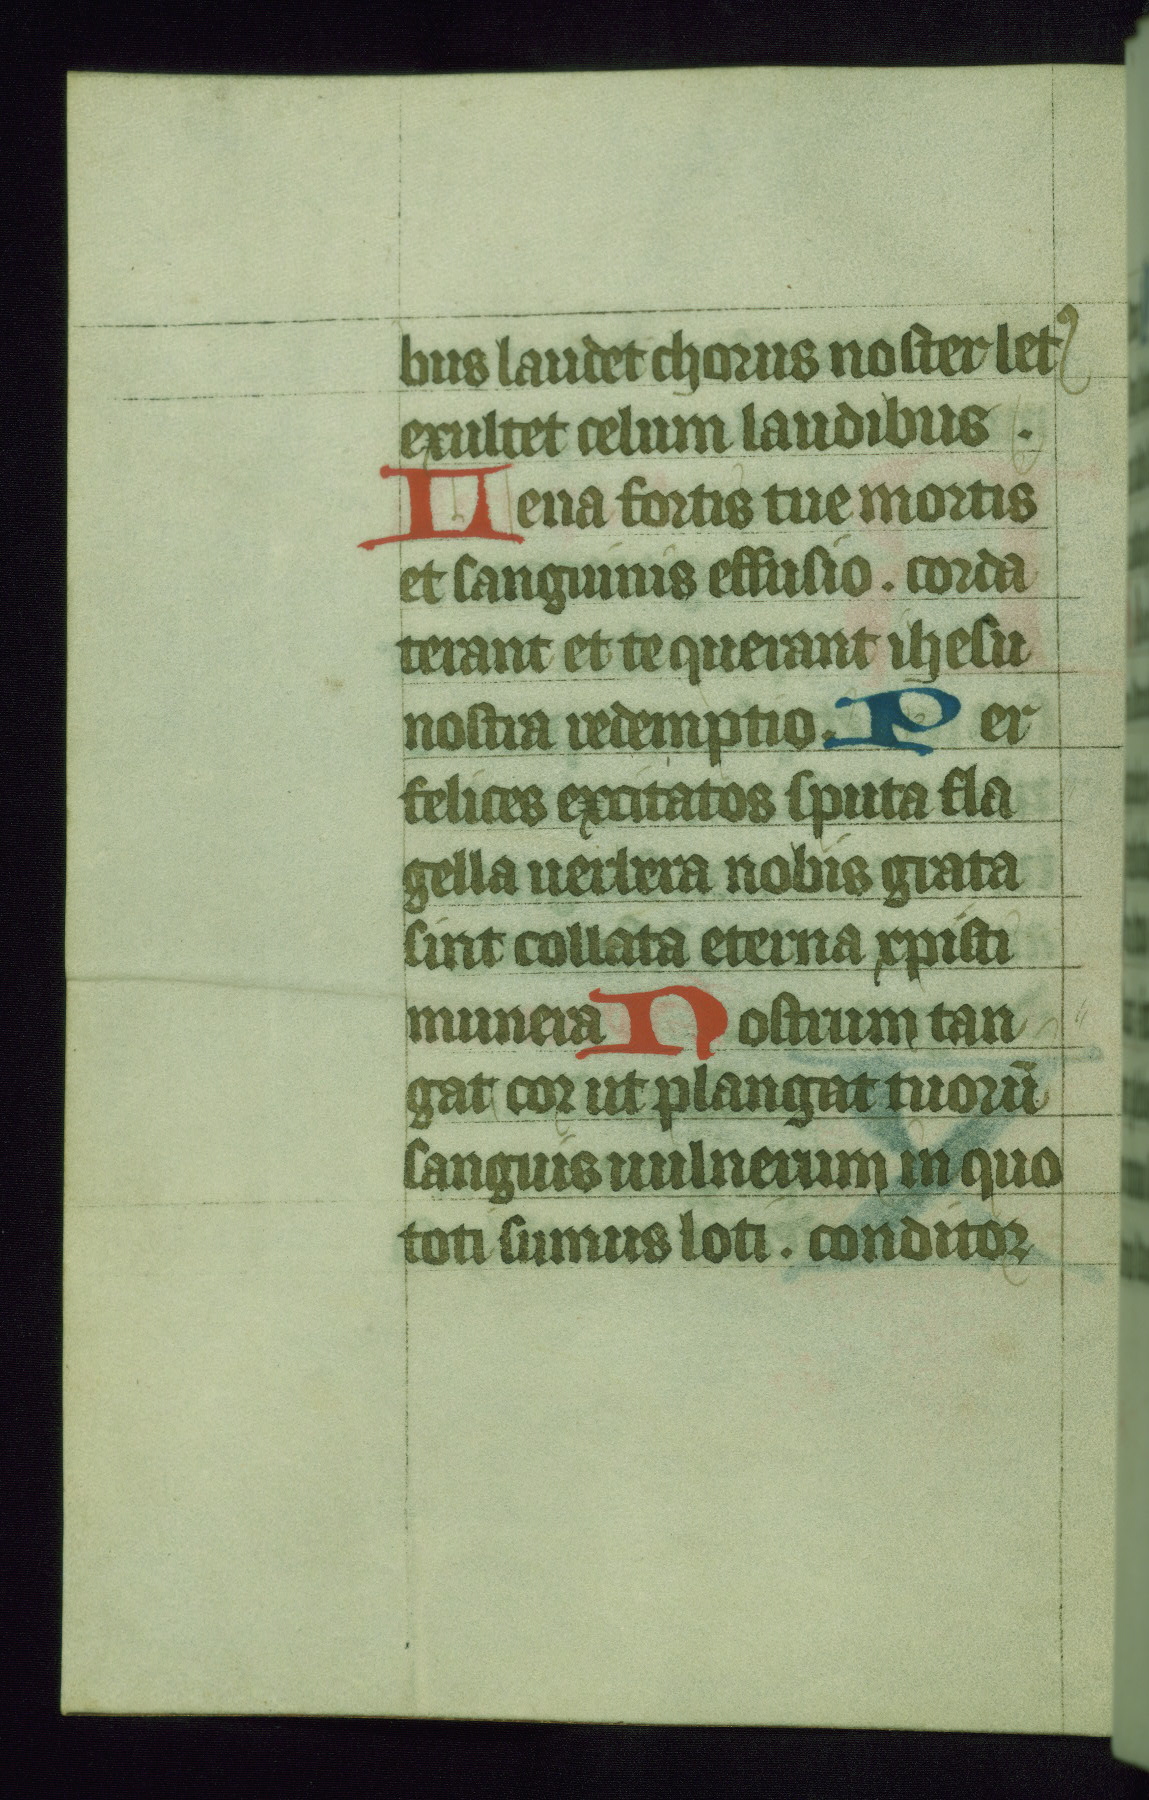 bus laudet chorus noster let
exultet celum laudibus .
Pena fortis tue mortis
et sanguinis effusio . corda
terant et te querant ihesu
nostra redemptio. Per
felices excitatos sputa fla
gella uerbera nobis grata
sint collata eterna xpisti
munera Nostrum tan
gat cor ut plangat tuorū
sanguis uulnerum in quo
toti sumus loti . conditor